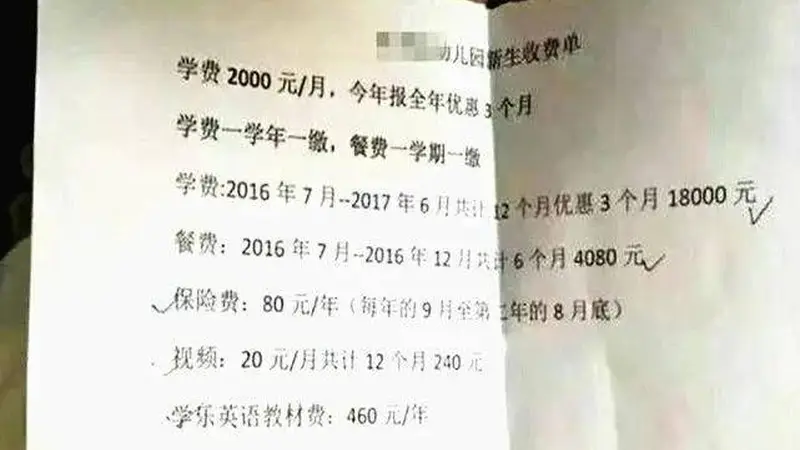 幼儿园新生收费单
学费 2000 元/月，今年报全年优惠 3 个月
学费一学年一缴，餐费一学期一缴
学费:2016 年 7 月--2017 年 6 月共计 12 个月优惠 3 个月 18000 元
餐费：2016 年 7 月--2016 年 12 月共计 6 个月 4080 元
保险费：80 元/年（每年的 9 月至第二年的 8 月底）
视频：20 元/月共计 12 个月 240 元
学乐英语教材费：460 元/年